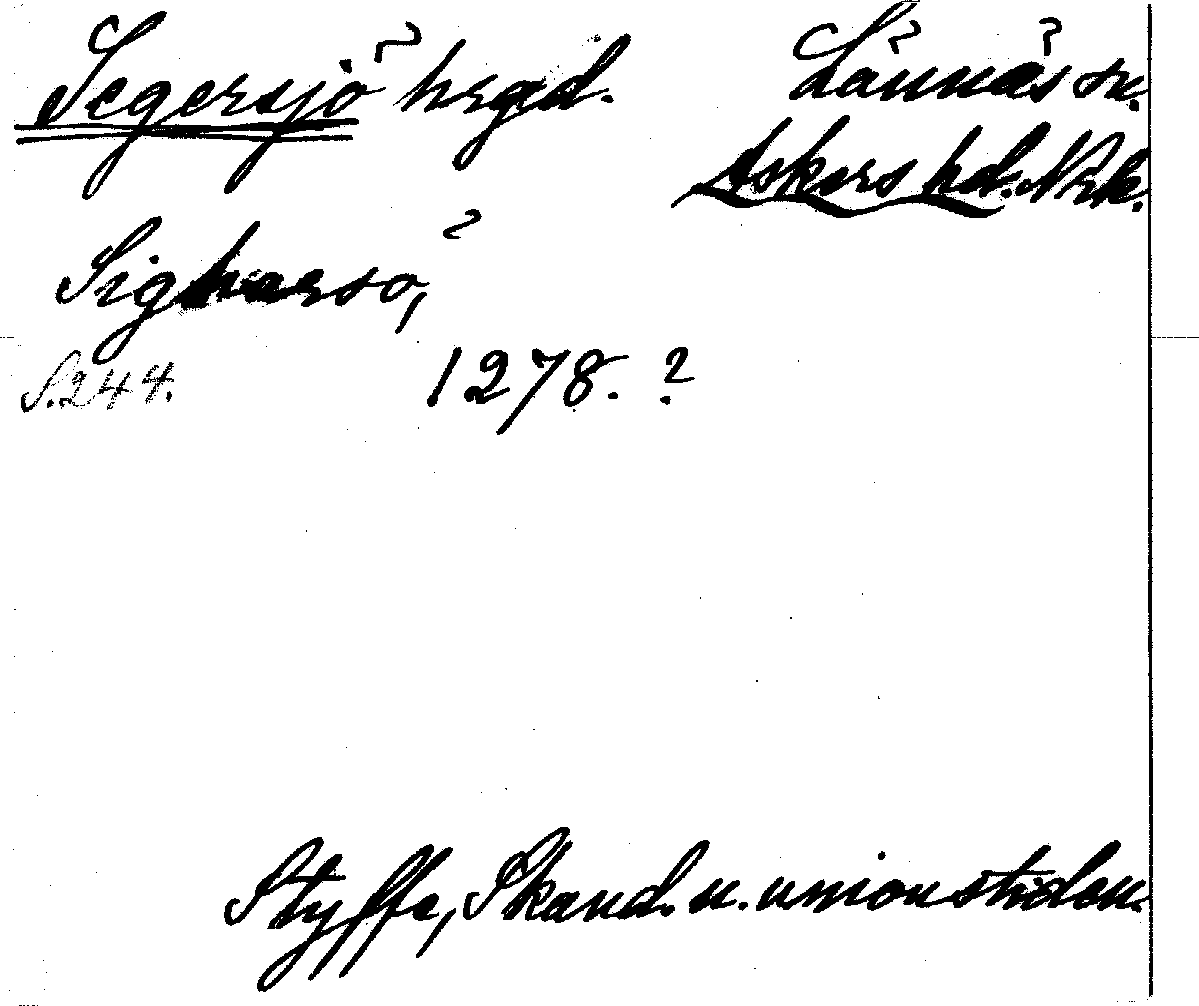 Segersjö hrgd. Lännäs sn.
Askers hd. Nrk.
Sigharsø,
S. 244. 1278. ?
Styffe, Skand. u. unionstiden.